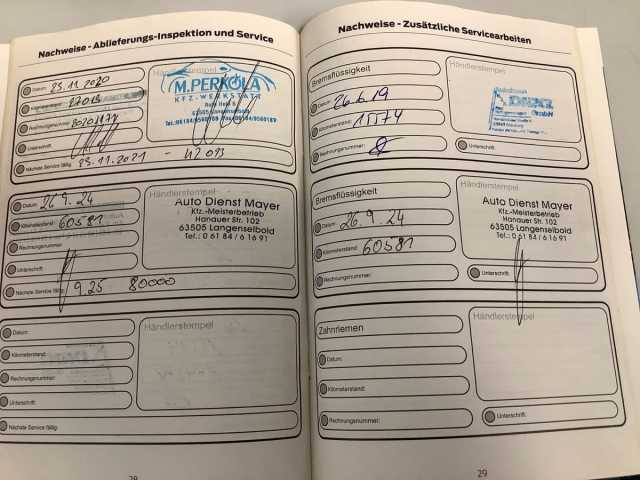 Nachweise - Ablieferungs-Inspektion und Service
Datum: 23.11.2020
Händlerstempel
Kilometerstand:
Rechnungsnummer:
Unterschrift:
Nächste Service fällig: 23.11.2021 - 42 093
M.PERKOLA
KFZ.-WERKSTATT
63505 Langenselbold
Datum: 26.9.24
Kilometerstand: 60581
Rechnungsnummer:
Unterschrift:
Nächste Service fällig: 9.25 80000
Händlerstempel
Auto Dienst Mayer
Kfz.-Meisterbetrieb
Hanauer Str. 102
63505 Langenselbold
Tel.: 0 61 84 / 6 16 91
Datum:
Kilometerstand:
Rechnungsnummer:
Unterschrift:
Nächste Service fällig:
Händlerstempel
28
Nachweise - Zusätzliche Servicearbeiten
Bremsflüssigkeit
Datum: 26.6.19
Kilometerstand: 15174
Rechnungsnummer:
Händlerstempel
GmbH
Unterschrift:
Bremsflüssigkeit
Datum: 26.9.24
Kilometerstand: 60581
Rechnungsnummer:
Händlerstempel
Auto Dienst Mayer
Kfz.-Meisterbetrieb
Hanauer Str. 102
63505 Langenselbold
Tel.: 0 61 84 / 6 16 91
Unterschrift:
Zahnriemen
Datum:
Kilometerstand:
Rechnungsnummer:
Händlerstempel
Unterschrift:
29